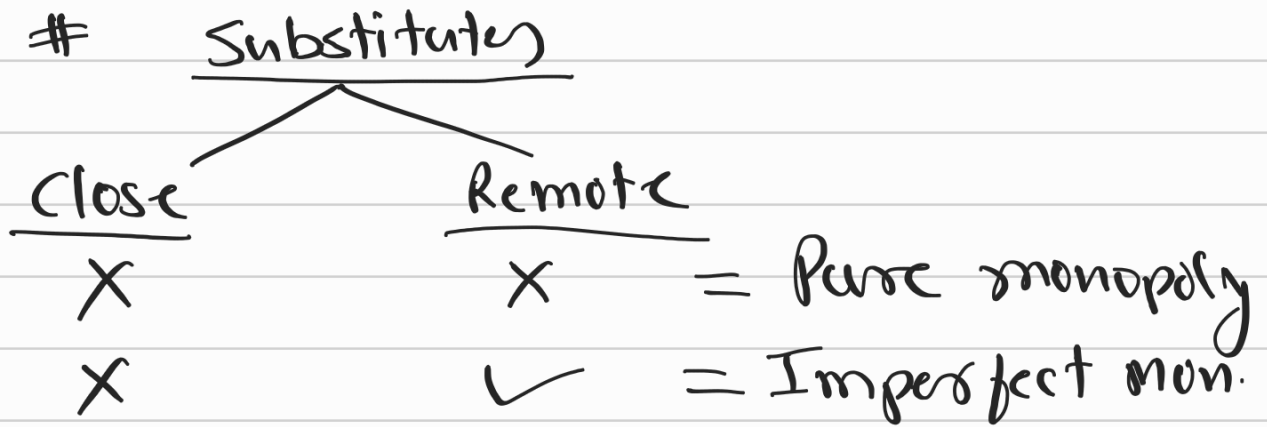 # Substitutes
Close Remote
X X = Pure monopoly
X ✓ = Imperfect mon.